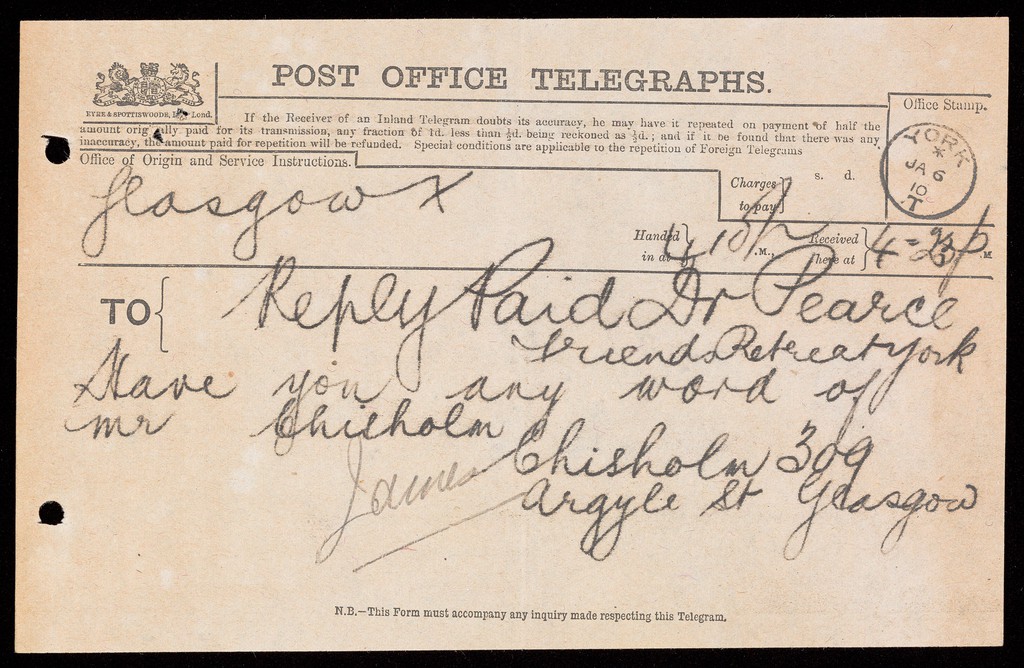 POST OFFICE TELEGRAPHS.
EYRE & SPOTTISWOODE, Lond.
If the Receiver of an Inland Telegram doubts its accuracy, he may have it repeated on payment of half the
amount originally paid for its transmission, any fraction of 1d. less than ½d. being reckoned as ½d.; and if it be found that there was any
inaccuracy, the amount paid for repetition will be refunded. Special conditions are applicable to the repetition of Foreign Telegrams
Office of Origin and Service Instructions.
Office Stamp.
YORK
*
JA 6
10
T
Charges
to pay
s. d.
Glasgow X
Handed
in at
4
.M.,
Received
here at
4-
.M
TO
Reply Paid Dr Pearce
Friends Retreat York
Have you any word of
mr Chisholm
James Chisholm 309
Argyle St Glasgow
N.B.—This Form must accompany any inquiry made respecting this Telegram.